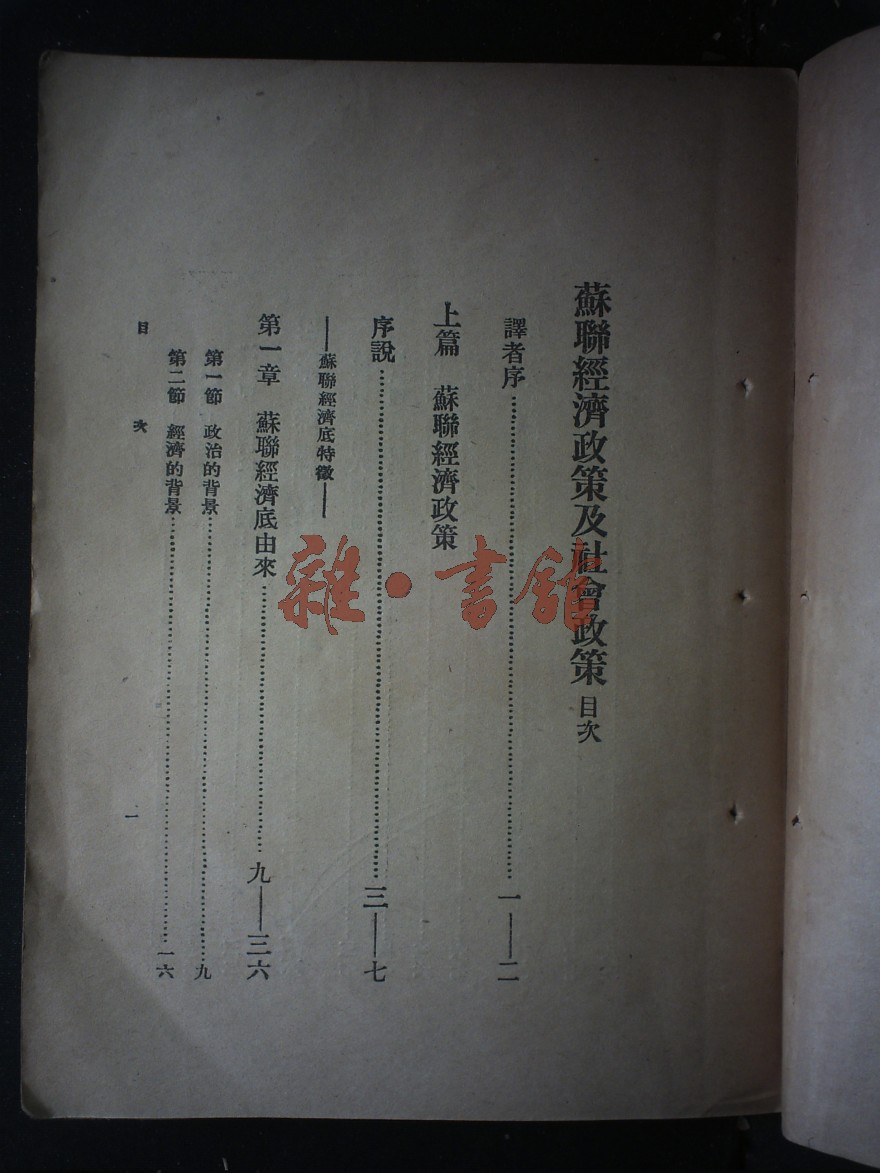 蘇聯經濟政策及社會政策 目次
譯者序…………一——二
上篇 蘇聯經濟政策
序說…………三——七
——蘇聯經濟底特徵——
第一章 蘇聯經濟底由來…………九——三六
第一節 政治的背景…………九
第二節 經濟的背景…………一六
目 次
一
雜·書館